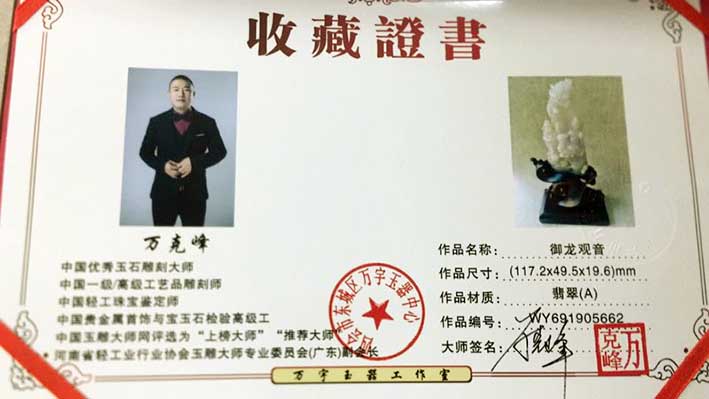 收藏證書
万克峰
中国优秀玉石雕刻大师
中国一级/高级工艺品雕刻师
中国轻工珠宝鉴定师
中国贵金属首饰与宝玉石检验高级工
中国玉雕大师网评选为“上榜大师”“推荐大师”
河南省轻工业行业协会玉雕大师专业委员会(广东)副会长
作品名称: 御龙观音
作品尺寸: (117.2x49.5x19.6)mm
作品材质: 翡翠(A)
作品编号: WY691905662
大师签名:
万克峰
四会市东城区万宇玉器中心
万宇玉器工作室